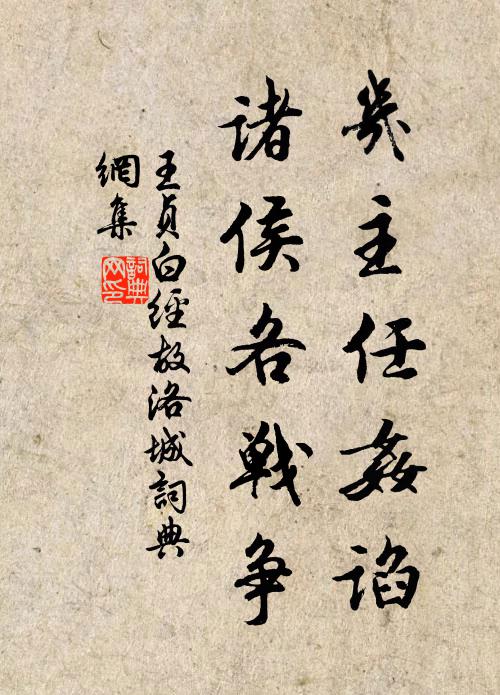 幾主任姦諂
諸侯各戰争
王貞白經故洛城詞典
網集
詞典
网印